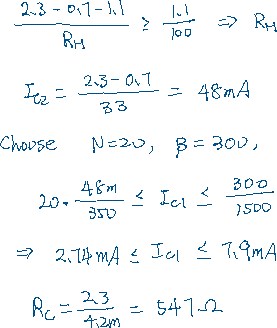 (2.3 - 0.7 - 1.1) / R_H ≥ 1.1 / 100 ⇒ R_H
I_C2 = (2.3 - 0.7) / 33 = 48mA
Choose N=20, β = 300,
20 · 48m / 350 ≤ I_C1 ≤ 300 / 1500
⇒ 2.74mA ≤ I_C1 ≤ 7.9mA
R_C = 2.3 / 4.2m = 547Ω